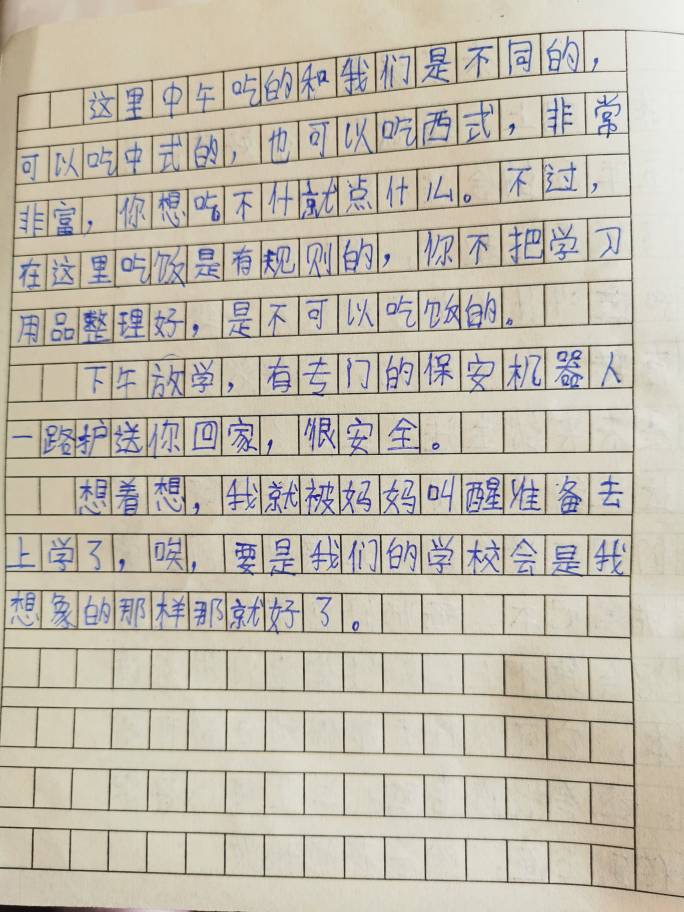 这里中午吃的和我们是不同的，
可以吃中式的，也可以吃西式，非常
非富，你想吃不什就点什么。不过，
在这里吃饭是有规则的，你不把学习
用品整理好，是不可以吃饭的。
下午放学，有专门的保安机器人
一路护送你回家，很安全。
想着想，我就被妈妈叫醒准备去
上学了，唉，要是我们的学校会是我
想象的那样那就好了。